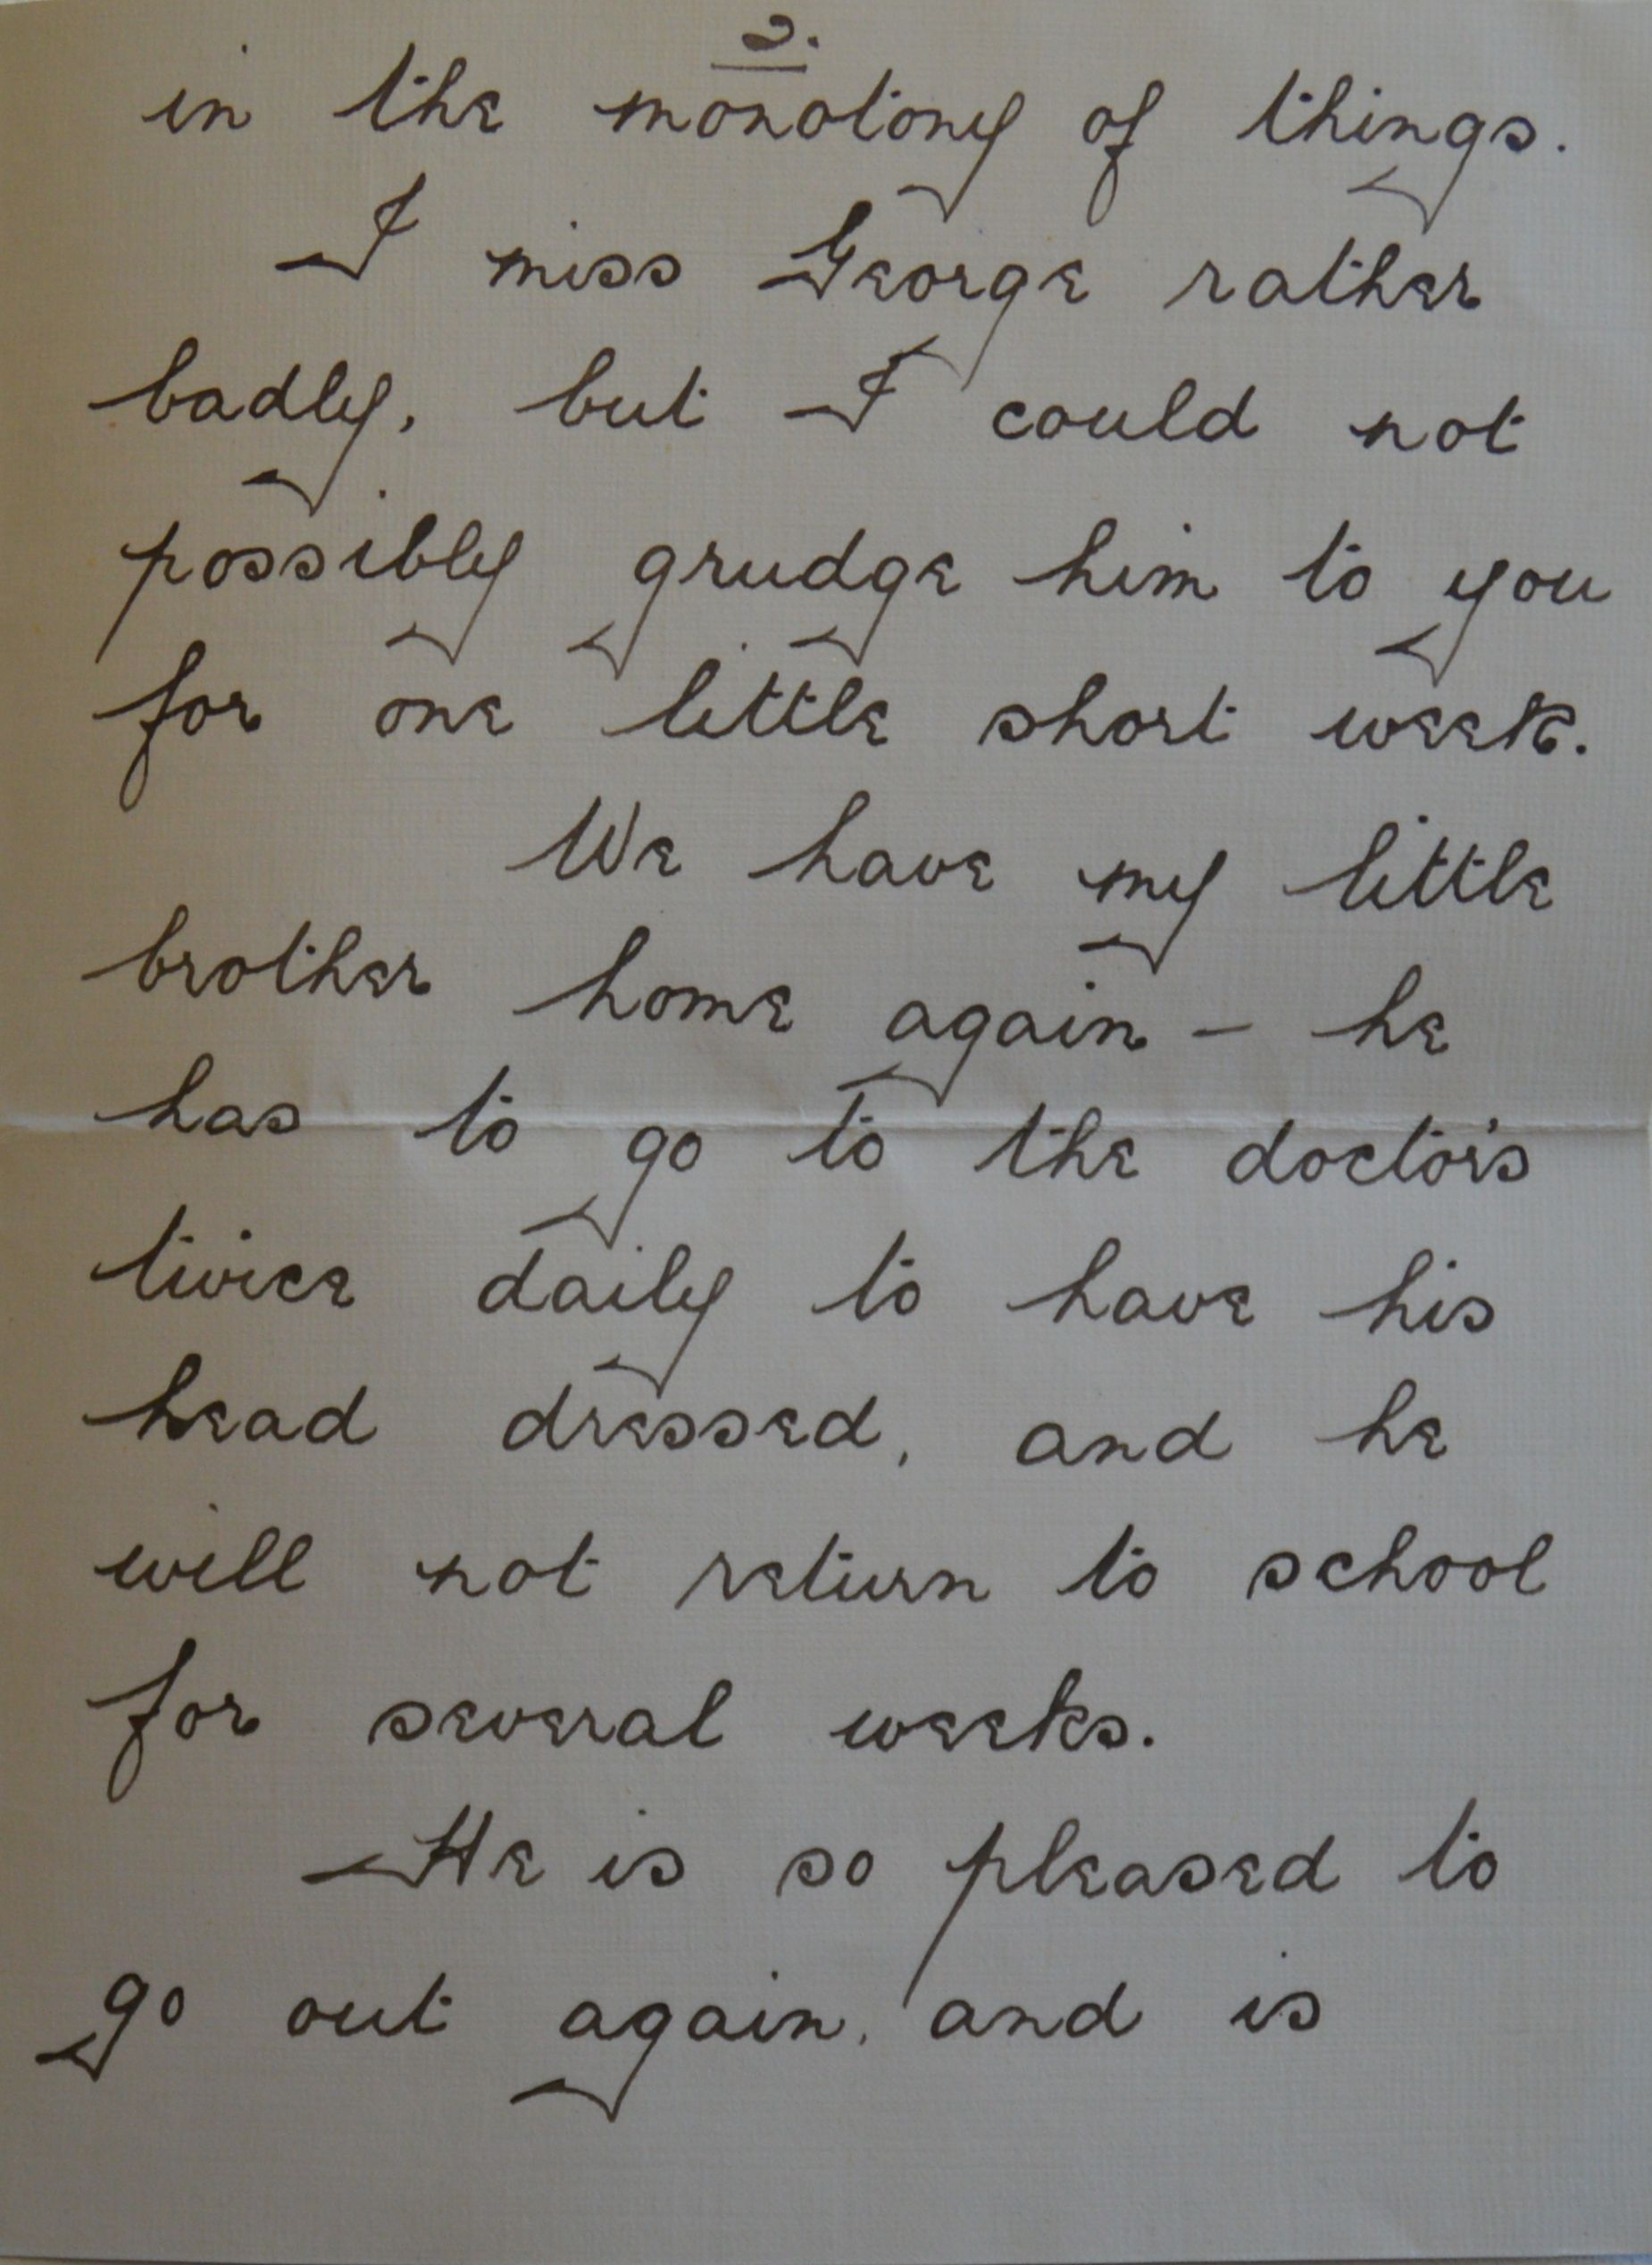 2.
in the monotony of things.
I miss George rather
badly, but I could not
possibly grudge him to you
for one little short week.
We have my little
brother home again – he
has to go to the doctor's
twice daily to have his
head dressed, and he
will not return to school
for several weeks.
He is so pleased to
go out again, and is